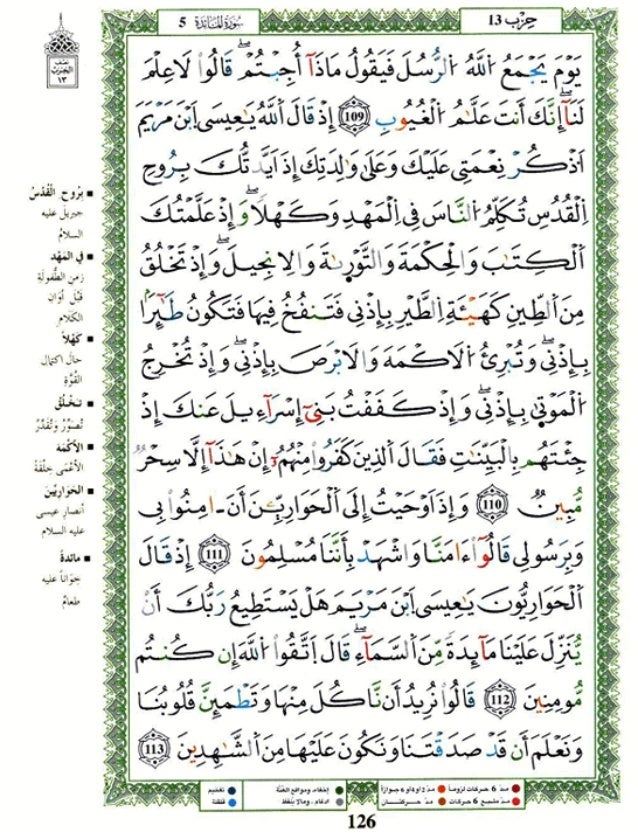 حِزْب 13
سُورَةُ المَائدَة 5
نصف
الحزب
١٣
يَوْمَ يَجْمَعُ اُللَّهُ اُلرُّسُلَ فَيَقُولُ مَاذَآ أُجِبْتُمْۖ قَالُواْ لَا عِلْمَ
لَنَآۖ إِنَّكَ أَنتَ عَلَّٰمُ اُلْغُيُوبِ 109 إِذْ قَالَ اَللَّهُ يَٰعِيسَى اَبْنَ مَرْيَمَ
اَذْكُرْ نِعْمَتِي عَلَيْكَ وَعَلَىٰ وَٰلِدَتِكَ إِذْ أَيَّدتُّكَ بِرُوحِ
اِلْقُدُسِ تُكَلِّمُ اُلنَّاسَ فِي اِلْمَهْدِ وَكَهْلاًۖ وَإِذْ عَلَّمْتُكَ
اَلْكِتَٰبَ وَالْحِكْمَةَ وَالتَّوْرَىٰةَ وَالِانجِيلَۖ وَإِذْ تَخْلُقُ
مِنَ اَلطِّينِ كَهَيْـَٔةِ اِلطَّيْرِ بِإِذْنِي فَتَنفُخُ فِيهَا فَتَكُونُ طَٰٓئِراَۢ
بِإِذْنِيۖ وَتُبْرِئُ اُلَاكْمَهَ وَالَابْرَصَ بِإِذْنِيۖ وَإِذْ تُخْرِجُ
اُلْمَوْتَىٰ بِإِذْنِيۖ وَإِذْ كَفَفْتُ بَنِيٓ إِسْرَآءِيلَ عَنكَ إِذْ
جِئْتَهُم بِالْبَيِّنَٰتِ فَقَالَ اَلذِينَ كَفَرُواْ مِنْهُمُۥٓ إِنْ هَٰذَآ إِلَّا سِحْرٌ
مُّبِينٌۖ 110 وَإِذَ اَوْحَيْتُ إِلَى اَلْحَوَارِيِّـۧنَ أَنَ ـ امِنُواْ بِي
وَبِرَسُولِي قَالُوٓاْ ءَامَنَّا وَاشْهَدْ بِأَنَّنَا مُسْلِمُونَ 111 إِذْ قَالَ
اَلْحَوَارِيُّونَ يَٰعِيسَى اَبْنَ مَرْيَمَ هَلْ يَسْتَطِيعُ رَبُّكَ أَنْ
يُّنَزِّلَ عَلَيْنَا مَآئِدَةً مِّنَ اَلسَّمَآءِۖ قَالَ اَتَّقُواْ اُللَّهَ إِن كُنتُم
مُّومِنِينَ 112 قَالُواْ نُرِيدُ أَن نَّاكُلَ مِنْهَا وَتَطْمَئِنَّ قُلُوبُنَا
وَنَعْلَمَ أَن قَدْ صَدَقْتَنَا وَنَكُونَ عَلَيْهَا مِنَ اَلشَّٰهِدِينَ 113
■ بِرُوحِ القُدُسُ
جبريل عليه
السلام
■ في المَهْد
زمنِ الطُّفولَةِ
قَبْلَ أوَانِ
الكَلَامِ
■ كَهْلاً
حالَ اكتمال
القُوَّةِ
■ تَخْلُقُ
تُصَوِّرُ وتُقَدِّرُ
■ الأكْمَهَ
الأعْمَى خِلْقَةً
■ الحَوَارِيِّينَ
أنصارِ عيسى
عليه السلام
■ مائدةً
خِوَاناً عليه
طعامٌ
مدّ 6 حركات لزوماً مدّ 2 أو 4 أو 6 جوازاً
مدّ مشبع 6 حركات مدّ حركتان
إخفاء، ومواقع الغنّة
ادغام، ومالا يُلفَظ
تفخيم
قلقلة
126